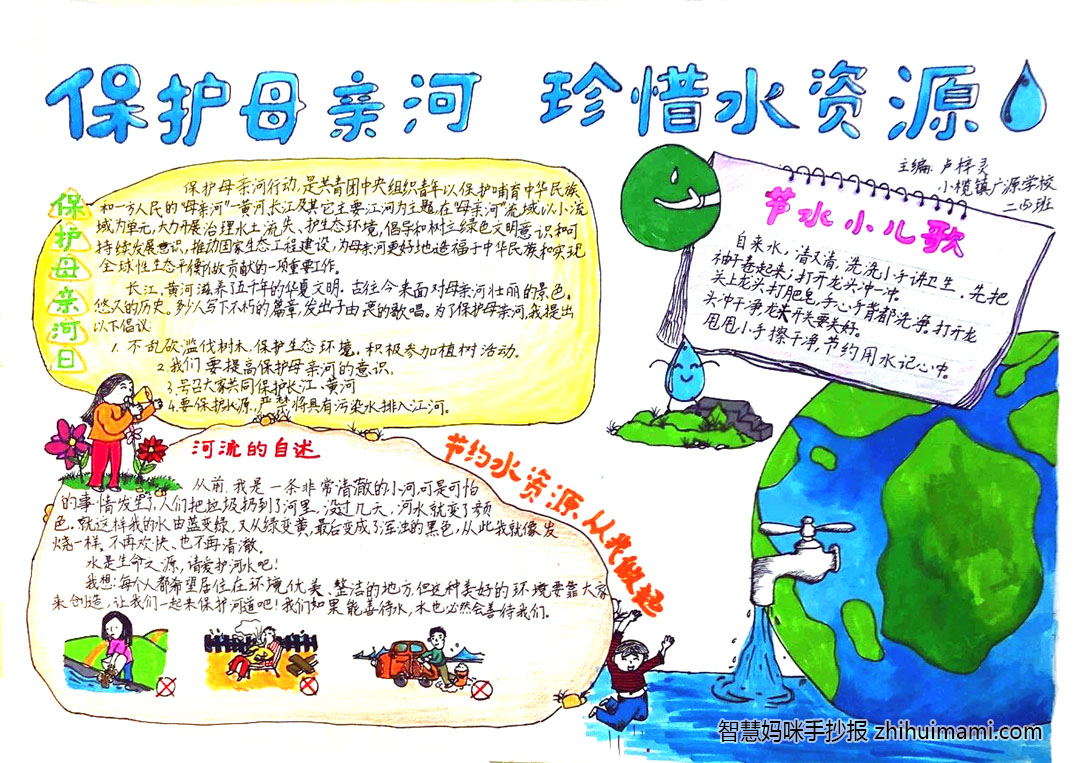 保护母亲河 珍惜水资源
主编:卢梓灵
小榄镇广源学校
二四班
保护母亲河日
保护母亲河行动,是共青团中央组织青年以保护哺育中华民族
和一方人民的“母亲河”—黄河长江及其它主要江河为主题,在“母亲河”流域以小流
域为单元,大力开展治理水土流失、护生态环境,倡导和树立绿色文明意识和可
持续发展意识,推动国家生态工程建设,为母亲河更好地造福于中华民族和实现
全球性生态平衡做贡献的一项重要工作。
长江、黄河滋养了五千年的华夏文明,古往今来面对母亲河壮丽的景色。
悠久的历史。多少人写下不朽的篇章,发出于由衷的歌唱。为了保护母亲河,我提出
以下倡议:
1. 不乱砍滥伐树木,保护生态环境。积极参加植树活动。
2. 我们要提高保护母亲河的意识。
3. 号召大家共同保护长江、黄河
4. 要保护水源,严禁将具有污染水排入江河。
节水小儿歌
自来水,清又清,洗洗小手讲卫生,先把
袖子卷起来;打开龙头冲一冲。
关上龙头打肥皂,手心手背都洗净。打开龙
头冲干净,龙头开关要关好。
甩甩小手擦干净,节约用水记心中。
河流的自述
从前,我是一条非常清澈的小河,可是可怕
的事情发生了,人们把垃圾扔到了河里,没过几天,河水就变了颜
色。就这样我的水由蓝变绿,又从绿变黄,最后变成了浑浊的黑色,从此我就像发
烧一样。不再欢快、也不再清澈。
水是生命之源,请爱护河水吧!
我想:每个人都希望居住在环境优美、整洁的地方,但这种美好的环境要靠大家
来创造,让我们一起来保护河道吧!我们如果能善待水,水也必然会善待我们。
节约水资源、从我做起
智慧妈咪手抄报 zhihuimami.com